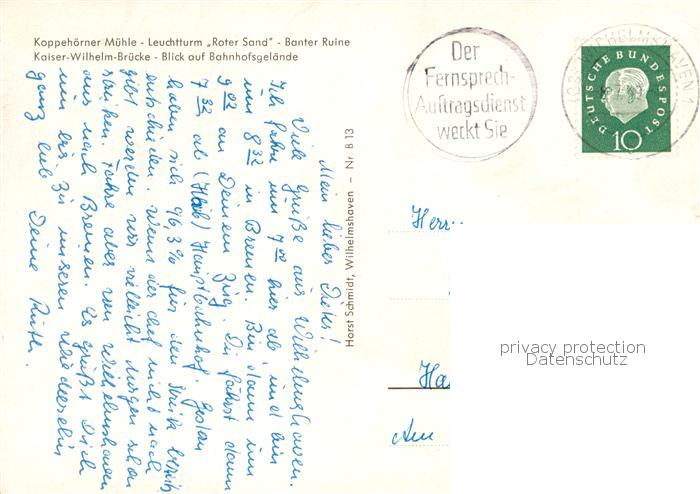 Koppehörner Mühle - Leuchtturm „Roter Sand" - Banter Ruine
Kaiser-Wilhelm-Brücke - Blick auf Bahnhofsgelände
Mein lieber Dieter!
Viele Grüße aus Wilhelmshaven.
Ich fahre um 7.02 hier ab und bin
um 8.32 in Bremen. Bin dann um
9.02 an Deinem Zug. Du fährst dann
7.32 ab (Hab) Hauptbahnhof. Gestern
haben sich 96,3% für den Streik
entschieden. Wenn der Chef nicht nach
gibt werden wir vielleicht morgen schon
streiken. Fahre aber von Wilhelmshaven
aus nach Bremen. Es grüßt Dich
nun bis zu unserem Wiedersehn
ganz lieb Deine Ruth.
Horst Schmidt, Wilhelmshaven - Nr. B 13
Der
Fernsprech-
Auftragsdienst
weckt Sie
WILHELMSHAVEN
DEUTSCHE BUNDESPOST
10
Herr
Ha
Am
privacy protection
Datenschutz